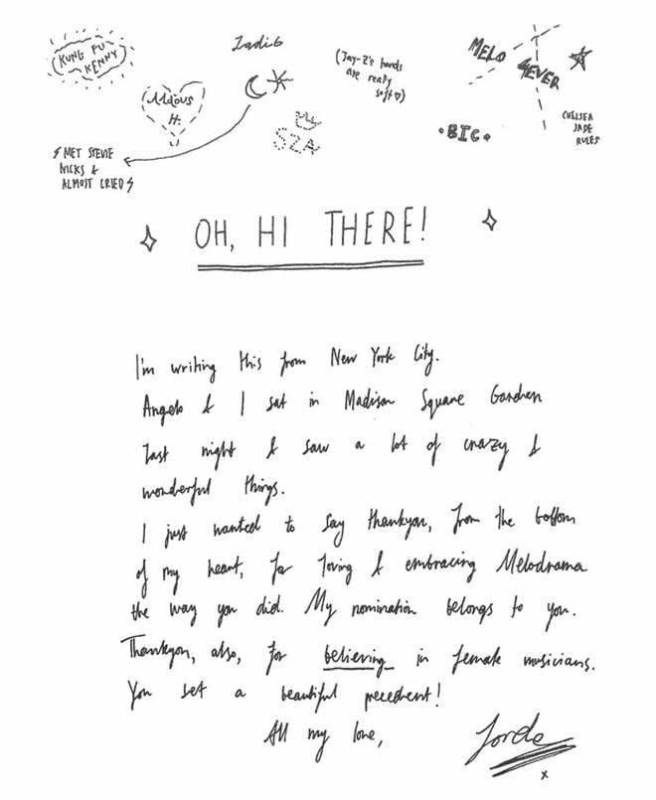 KUNG FU
KENNY
Aldous
H.
⚡MET STEVIE
NICKS &
ALMOST CRIED⚡
SZA
(Jay-Z's hands
are really
soft♡)
MELO
4EVER
•BIG•
CHELSEA
JADE
RULES
OH, HI THERE!
I'm writing this from New York City.
Angelo & I sat in Madison Square Garden
last night & saw a lot of crazy &
wonderful things.
I just wanted to say thankyou, from the bottom
of my heart, for loving & embracing Melodrama
the way you did. My nomination belongs to you.
Thankyou, also, for believing in female musicians.
You set a beautiful precedent!
All my love,
Lorde
x